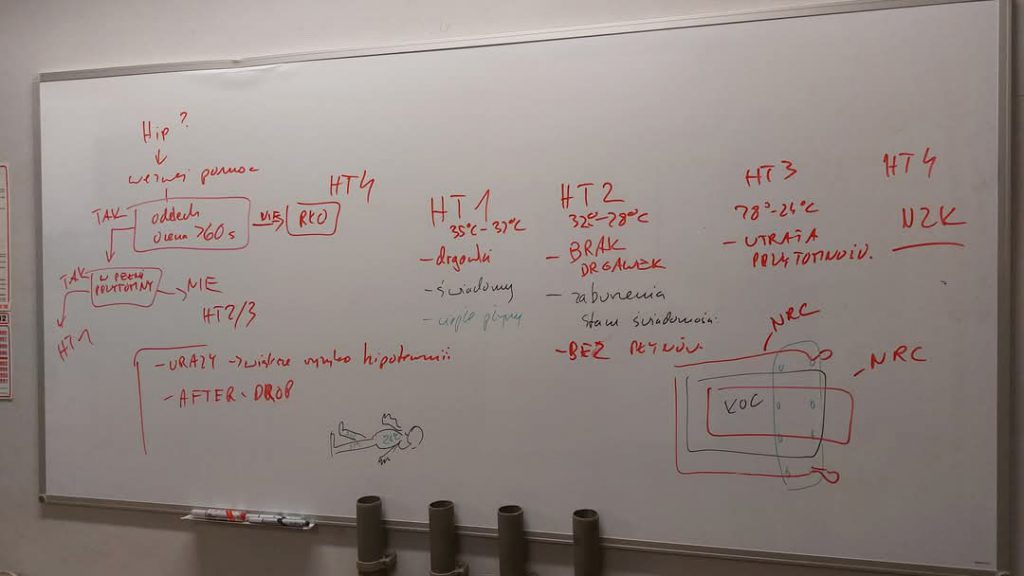 Hip?
wezwij pomoc
TAK
oddech
ocena >60s
NIE
RKO
HT4
TAK
W PEŁNI
PRZYTOMNY
NIE
HT1
HT2/3
- URAZY → większe ryzyko hipotermii
- AFTER-DROP
HT1
35°C-32°C
- drgawki
- świadomy
- ciepłe płyny
HT2
32°-28°C
- BRAK
DRGAWEK
- zaburzenia
stanu świadomości
- BEZ PŁYNÓW
HT3
28°-24°C
- UTRATA
PRZYTOMNOŚCI.
HT4
NZK
NRC
- NRC
KOC